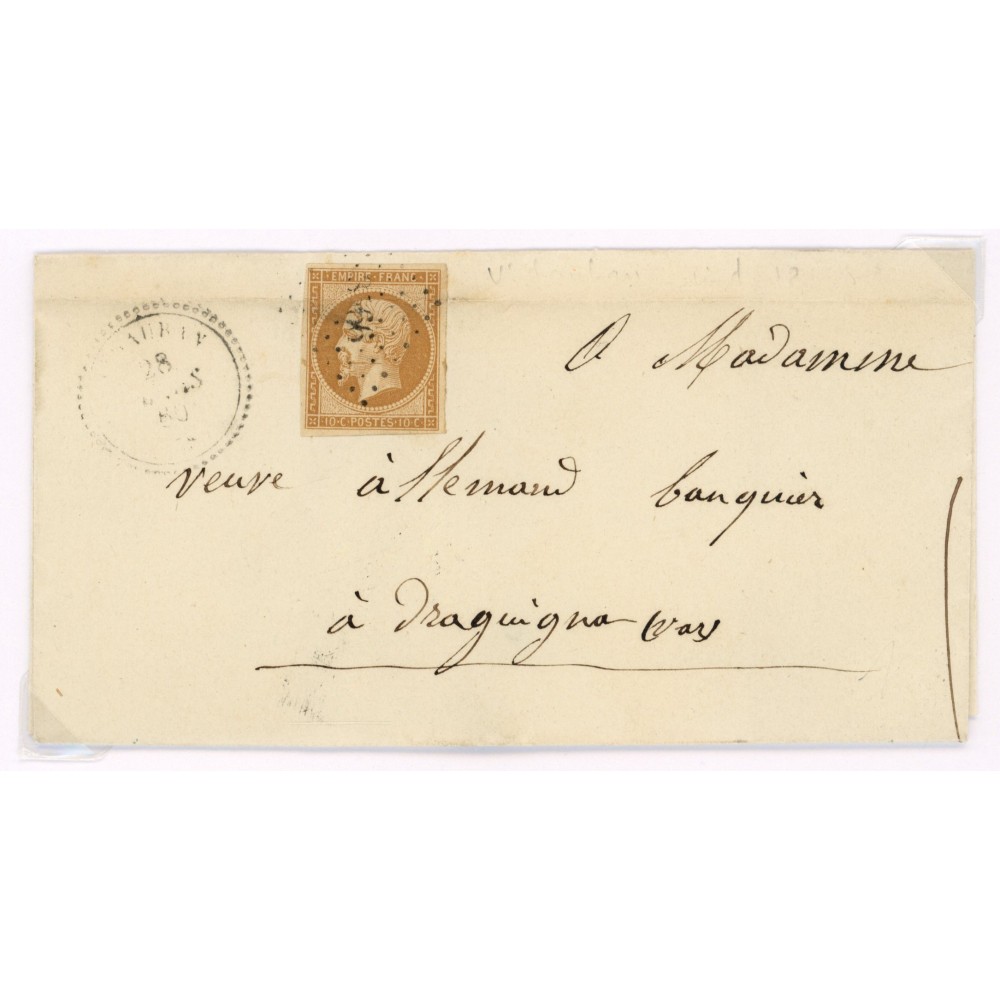 EMPIRE FRANC
10·C·POSTES·10·C
28
MARS
O Madamme
veuve allemand banquier
à draguigna (var)